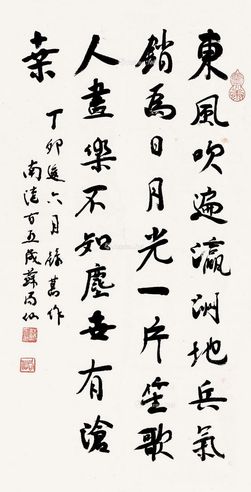 東風吹遍瀛洲地兵氣
銷為日月光一片笙歌
人盡樂不知塵世有滄
桑
丁卯閏六月錄舊作
南海百五歲蘇局仙